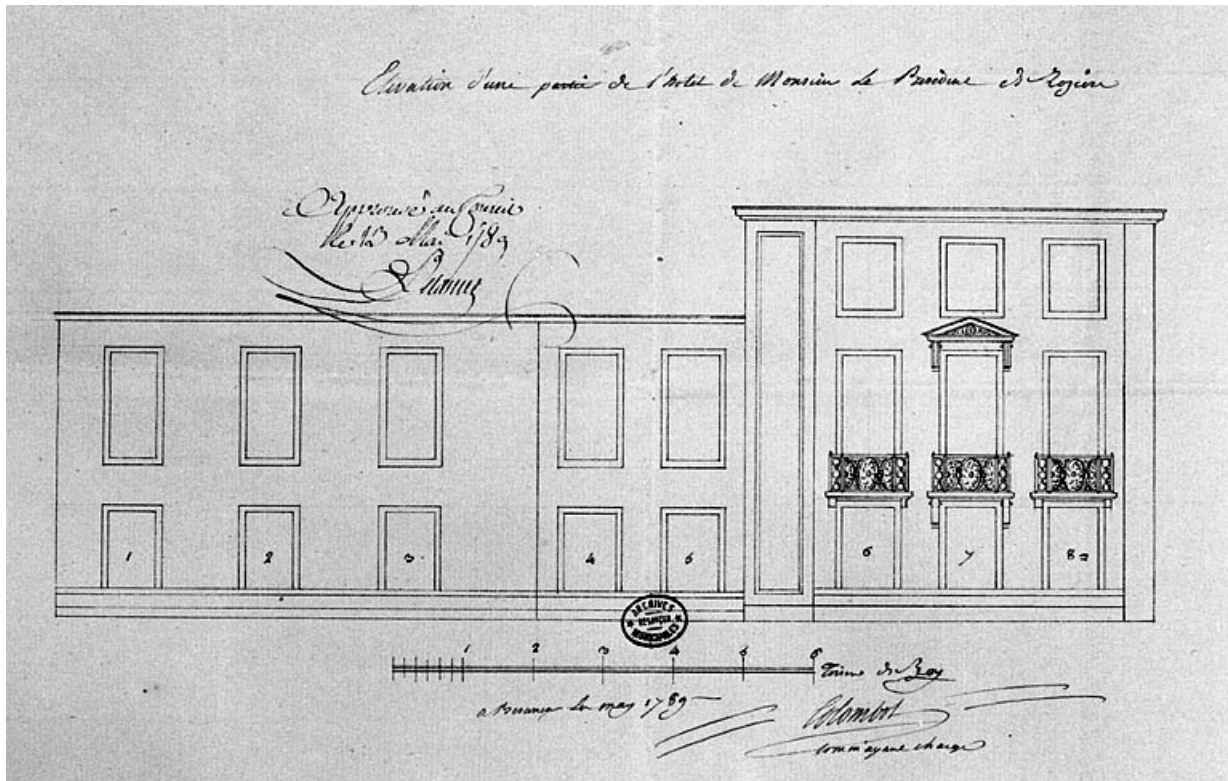 Elevation d'une partie de l'hotel de Monsieur Le de Rozière
Approuvé au
le Mai 1789
1
2
3
4
5
6
7
8
ARCHIVES
BESANÇON
MUNICIPALES
1 2 3 4 5 6 Toises de Roy
a Besançon le may 1789
Colombot
comm ayant charge